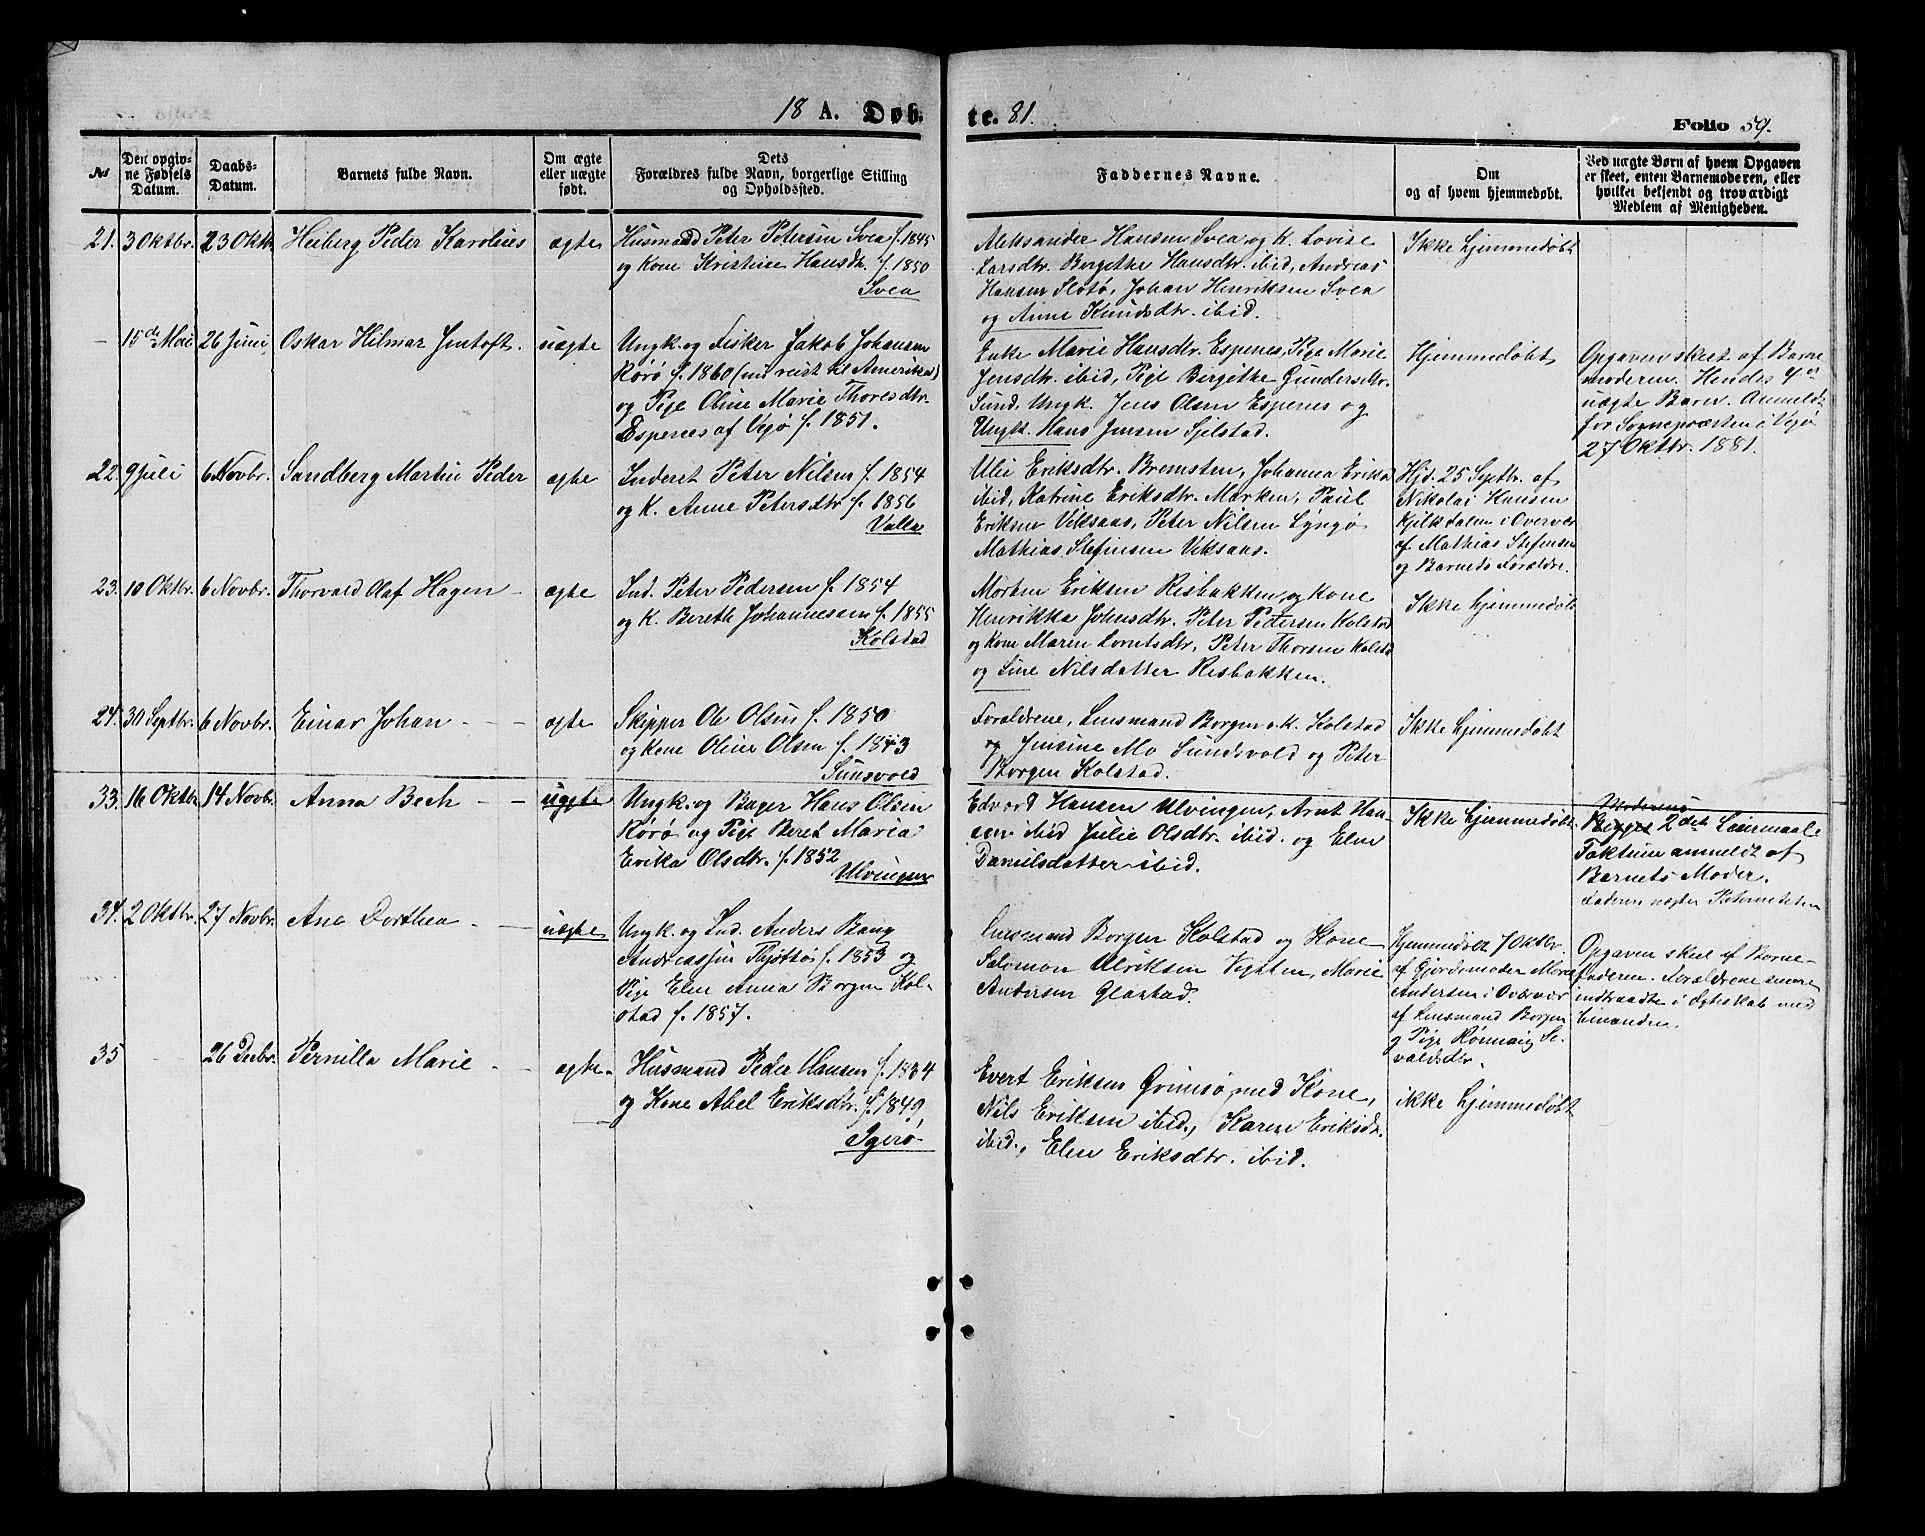 18 A. Døb-
te. 81.
Folio 59.
No
Den opgiv-
ne Fødsels
Datum.
Daabs-
Datum.
Barnets fulde Navn.
Om ægte
eller uægte
født.
Dets
Forældres fulde Navn, borgerlige Stilling
og Opholdssted.
Faddernes Navne.
Om
og af hvem hjemmedøbt.
Ved uægte Børn af hvem Opgaven
er skeet, enten Barnemoderen, eller
hvilket bekjendt og troværdigt
Medlem af Menigheden.
21. 3 Oktbr. 23 Oktb Heiberg Peder Karolius ægte
Husmand Peter Petersen Svea f. 1845
og Kone Kristine Hansdtr. f. 1850
Svea
Aleksander Hansen Svea og K. Lovise
Larsdtr. Bergithe Hansdtr. ibid, Andreas
Hansen Slotø, Johan Henriksen Svea
og Anne Knudsdtr. ibid.
Ikke hjemmedøbt
- 15de Mai 26 Juni Oskar Hilmar Jentoft. uægte
Ungk. og Fisker Jakob Johansen
Rørø f. 1860 (nu reist til Amerika)
og Pige Oline Marie Thoresdtr.
Espenes af Vegø f. 1851.
Enke Marie Hansdtr. Espenes, Pige Marie
Jensdtr. ibid, Pige Birgithe Gundersdtr.
Sund, Ungk. Jens Olsen Espenes og
Ungk. Hans Jensen Sjelstad.
Hjemmedøbt
Opgaven skeet af Barne
moderen. Hendes 4de
uægte Barn. Anmeldt
for Sognepræsten i Vegø
27 Oktbr. 1881.
22. 9 Juli 6 Novbr. Sandberg Martin Peder ægte
Inderst Peter Nilsen f. 1854
og K. Anne Petersdtr f. 1856
Valla
Ulie Eriksdtr. Bremsten, Johanna Eriksd
ibid, Katrine Eriksdtr. Marken, Paul
Eriksen Viksaas, Peter Nilsen Lyngø
Mathias Stefensen Viksaas.
Hjd. 25 Septbr. af
Nikolai Hansen
Kjilkdalen i Overvær
af Mathias Stefensen
og Barnets Forældre.
23. 10 Oktbr. 6 Novbr. Thorvald Olaf Hagen - ægte
Ind. Peter Pedersen f. 1854
og K. Bereth Johannesen f. 1855
Kolstad
Morten Eriksen Risbakken og Kone
Henrikka Johnsdtr. Peter Pedersen Kolstad
og Kone Maren Lorntsdtr, Peter Thorsen Kolstad
og Line Nilsdatter Risbakken.
Ikke hjemmedøbt
24. 30 Septbr. 6 Novbr. Einar Johan - - - ægte
Skipper Ole Olsen f. 1850
og Kone Oline Olsen f. 1843
Sunsvold
Forældrene, Lensmand Borgen o. K. Kolstad
og Jensine Mo Sundsvold og Peter
Borgen Kolstad.
Ikke hjemmedøbt
33. 16 Oktbr 14 Novbr. Anna Bech - - uægte
Ungk. og Bager Hans Olsen
Rørø og Pige Beret Maria
Erika Olsdtr. f. 1852
Ulvingen
Edvard Hansen Ulvingen, Arnt Han-
sen ibid Julie Olsdtr. ibid. og Elen
Danielsdatter ibid.
Ikke hjemmedøbt.
Moderens
Begges 2det Leiermaal
Faktum anmeldt af
Barnets Moder.
Faderen nægter Paterniteten
34. 2 Oktbr. 27 Novbr. Ana Dorthea - - uægte
Ungk. og Ind. Anders Bang
Andreassen Thjøttø f. 1853 og
Pige Elen Anna Borgen Kol-
stad f. 1857.
Lensmand Borgen Kolstad og Kone
Salomon Ulriksen Vegtten, Marie
Andersen Glastad.
Hjemmedøbt 7 Oktbr.
af Gjordemoder Marie
Andersen i Overvær
af Lensmand Borgen
og Pige Rønnaug Si-
valdsdtr.
Opgaven skeet af Barne-
faderen. Forældrene senere
indtraadte i Ægteskab med
hinanden.
35 - 26 Decbr. Pernilla Marie - - ægte.
Husmand Peder Hansen f. 1834
og Kone Abel Eriksdtr. f. 1849
Igerø
Evert Eriksen Grimsø med Kone,
Nils Eriksen ibid., Karen Eriksdtr.
ibid., Elen Eriksdtr. ibid.
ikke hjemmedøbt